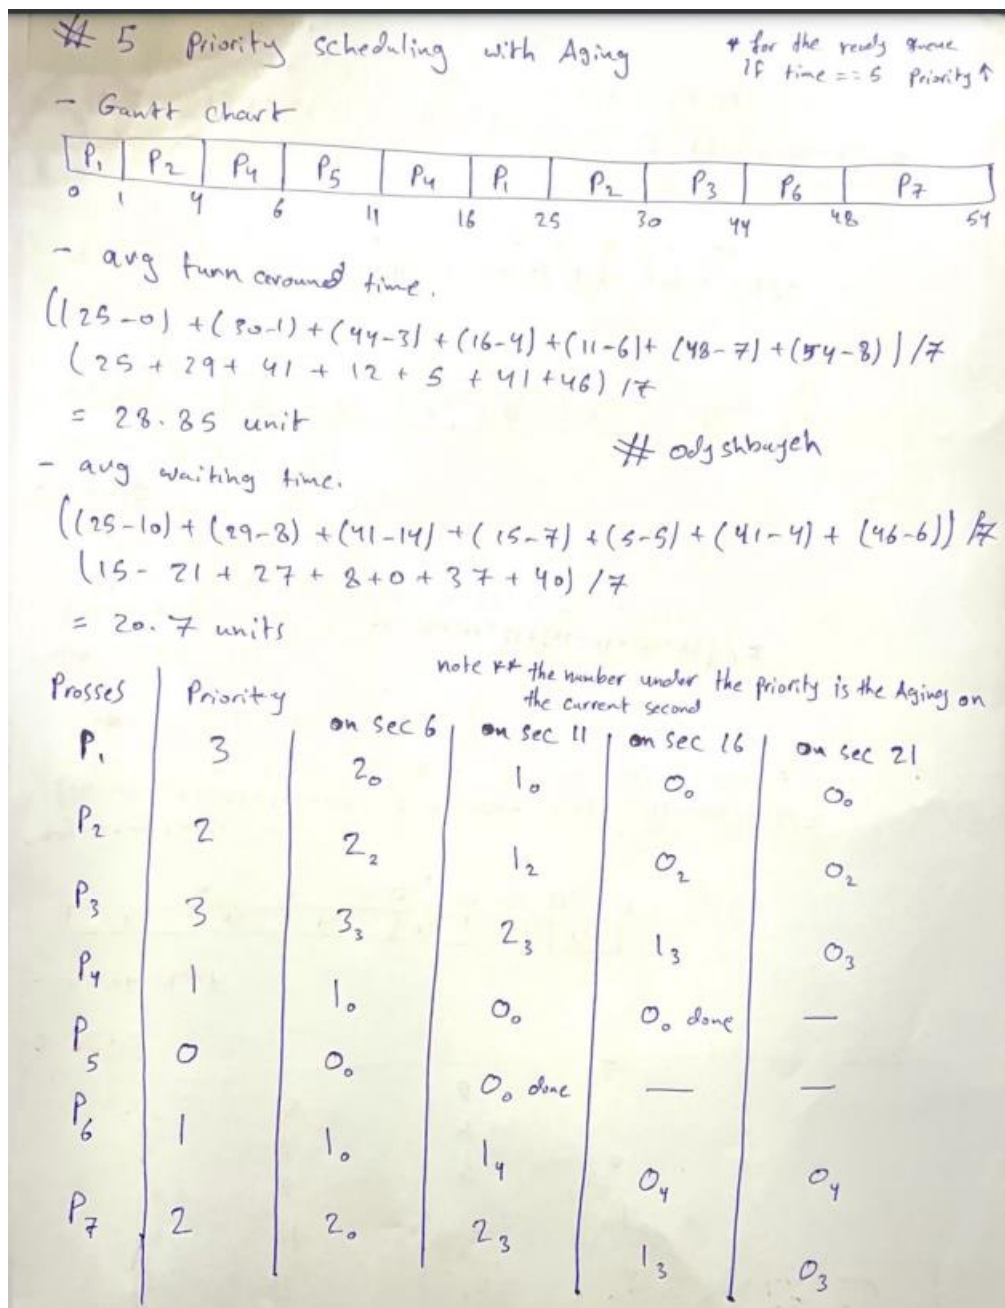 # 5 Priority scheduling with Aging
* for the ready queue
If time == 5 Priority ↑
- Gantt chart
P1 P2 P4 P5 P4 P1 P2 P3 P6 P7
0 1 4 6 11 16 25 30 44 48 54
- avg turn around time.
((25-0) + (30-1) + (44-3) + (16-4) + (11-6) + (48-7) + (54-8)) /7
(25 + 29 + 41 + 12 + 5 + 41 + 46) /7
= 28.85 unit
# odyshbayeh
- avg waiting time.
((25-10) + (29-8) + (41-14) + (15-7) + (5-5) + (41-4) + (46-6)) /7
(15 - 21 + 27 + 8 + 0 + 37 + 40) /7
= 20.7 units
note ** the number under the priority is the Aging on
the current second
Prosses Priority on sec 6 on sec 11 on sec 16 on sec 21
P1 3 2₀ 1₀ 0₀ 0₀
P2 2 2₂ 1₂ 0₂ 0₂
P3 3 3₃ 2₃ 1₃ 0₃
P4 1 1₀ 0₀ 0₀ done —
P5 0 0₀ 0₀ done — —
P6 1 1₀ 1₄ 0₄ 0₄
P7 2 2₀ 2₃ 1₃ 0₃